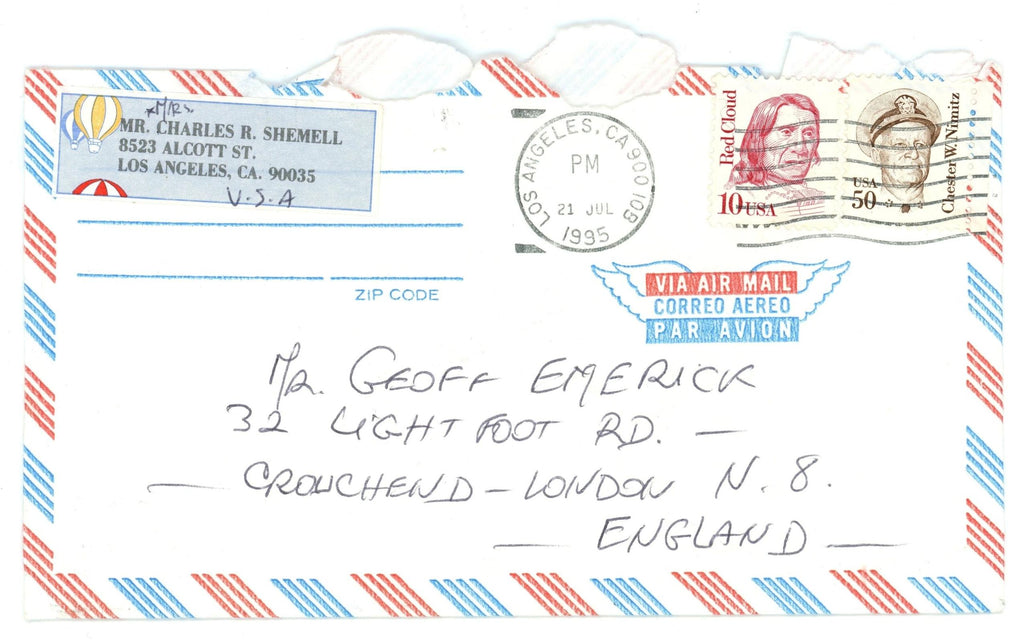 MR.
MR. CHARLES R. SHEMELL
8523 ALCOTT ST.
LOS ANGELES, CA. 90035
U.S.A
ZIP CODE
LOS ANGELES, CA 900
PM
21 JUL
1995
Red Cloud
10 USA
USA
50
Chester W. Nimitz
VIA AIR MAIL
CORREO AEREO
PAR AVION
MR. GEOFF EMERICK
32 LIGHTFOOT RD. —
— CROUCHEND – LONDON N. 8.
— ENGLAND —